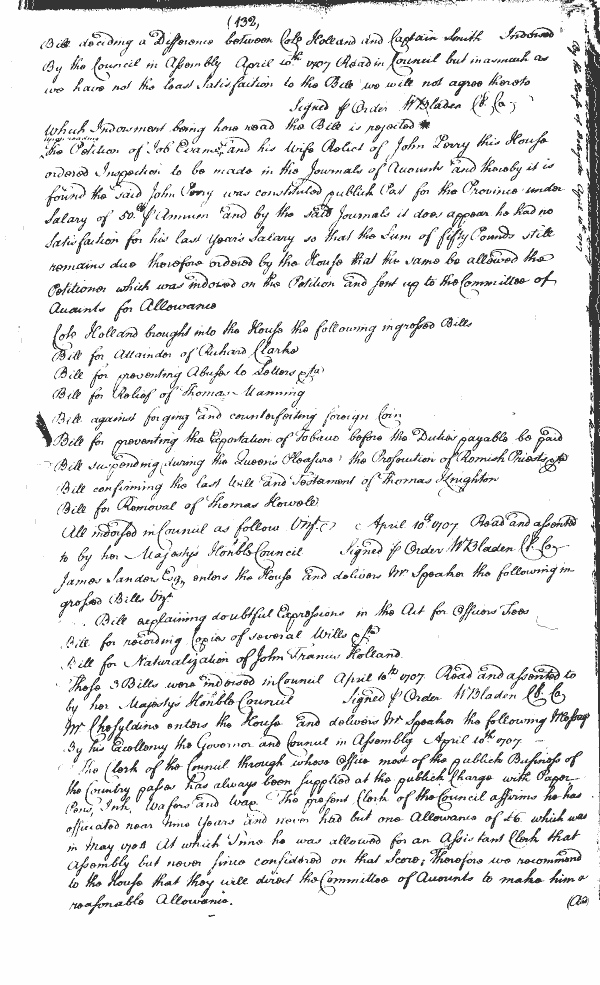 (132)
Bill deciding a Difference between Colo Holland and Captain Smith Indorsed
By the Council in Assembly April 10th 1707 Read in Council but inasmuch as
we have not the least Satisfaction to the Bill we will not agree thereto
Signed p Order W Bladen Cl. Co.
which Indorsment being here read the Bill is rejected
upon reading
the Petition of Job Evans and his Wife Relict of John Perry this House
ordered Inspection to be made in the Journals of Accounts and thereby it is
found the said John Perry was constituted publick Post for the Province under
Salary of 50lb p Annum and by the said Journals it does appear he had no
Satisfaction for his last Year's Salary so that the Sum of fifty Pounds still
remains due therefore ordered by the House that the same be allowed the
Petitioner which was indorsed on the Petition and sent up to the Committee of
Accounts for Allowance
Colo Holland brought into the House the following ingrossed Bills
Bill for Attainder of Richard Clarke
Bill for preventing Abuses to Letters &ta
Bill for Relief of Thomas Manning
Bill against forging and counterfeiting foreign Coin
Bill for preventing the Exportation of Tobacco before the Duties payable be paid
Bill suspending during the Queen's Pleasure the Prosecution of Romish Priests &ta
Bill confirming the last Will and Testament of Thomas Knighton
Bill for Removal of Thomas Howell
All indorsed in Council as follow Vizt. April 10th 1707 Read and assented
to by her Majestys Honble Council Signed p Order W Bladen Cl. Co.
James Sanders Esq. enters the House and delivers Mr Speaker the following in
grossed Bills Vizt
Bill explaining doubtful Expressions in the Act for Officers Fees
Bill for recording Copies of several Wills &ta
Bill for Naturalization of John Francis Holland
These 3 Bills were indorsed in Council April 10th 1707 Read and assented to
by her Majestys Honble Council Signed p Order W Bladen Cl. Co
Mr Cheseldine enters the House and delivers Mr Speaker the following Message
By his Excellency the Governor and Council in Assembly April 10th 1707
The Clerk of the Council through whose Office most of the publick Business of
the Country passes has always been supplied at the publick Charge with Paper
Pens, Ink, Wafers and Wax The present Clerk of the Council affirms he has
officiated near Nine Years and never had but one Allowance of £6 which was
in May 1704 At which Time he was allowed for an Assistant Clerk that
Assembly but never since considered on that Score; Therefore we recommend
to the House that they will direct the Committee of Accounts to make him a
reasonable Allowance.